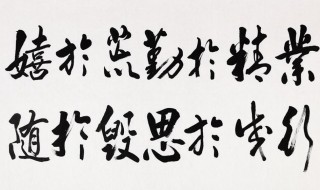 業精於勤荒於嬉
行成於思毁於随